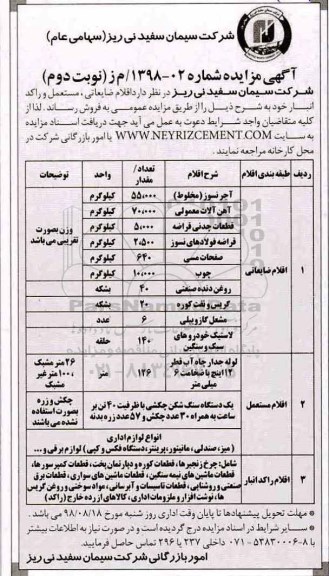 شرکت سیمان سفید نی ریز (سهامی عام)
آگهی مزایده شماره ۰۲-۱۳۹۸/م ز (نوبت دوم)
شرکت سیمان سفید نی ریز در نظر دارد اقلام ضایعاتی، مستعمل و راکد
انبار خود به شرح ذیل را از طریق مزایده عمومی به فروش رساند. لذا از
کلیه متقاضیان واجد شرایط دعوت به عمل می آید جهت دریافت اسناد مزایده
به سایت WWW.NEYRIZCEMENT.COM یا امور بازرگانی شرکت در
محل کارخانه مراجعه نمایند.
ردیف طبقه بندی اقلام شرح اقلام تعداد/مقدار واحد توضیحات
۱ اقلام ضایعاتی وزن بصورت تقریبی می باشد
آجر نسوز (مخلوط) ۵۵،۰۰۰ کیلوگرم
آهن آلات معمولی ۷۰،۰۰۰ کیلوگرم
قطعات چدنی قراضه ۵،۰۰۰ کیلوگرم
قراضه فولادهای نسوز ۲،۵۰۰ کیلوگرم
صفحات مسی ۶۴۰ کیلوگرم
چوب ۱۰،۰۰۰ کیلوگرم
روغن دنده صنعتی ۴۰ بشکه
گریس و نفت کوره ۲۰ بشکه
مشعل گازوییلی ۶ عدد
لاستیک خودروهای سبک و سنگین ۱۴۰ حلقه
لوله جدار چاه آب قطر ۱۲ اینچ با ضخامت ۶ میلی متر ۱۲۶ متر ۲۶ متر مشبک، ۱۰۰ متر غیر مشبک
۲ اقلام مستعمل یک دستگاه سنگ شکن چکشی با ظرفیت ۴۰ تن بر ساعت به همراه ۳۰ عدد چکش و ۵۷ عدد زره بدنه چکش و زره بصورت استفاده نشده می باشند
۳ اقلام راکد انبار
انواع لوازم اداری
(میز، صندلی، مانیتور، پرینتر، دستگاه فکس و کپی) لوازم برقی و ...
شامل: چرخ زنجیرها، قطعات کوره و دپارتمان پخت، قطعات کمپرسورها،
قطعات ماشین های نیمه سنگین، قطعات ماشین های سواری، قطعات برق
صنعتی و روشنایی، قطعات تاسیسات و آبرسانی، مواد سوختی و روغن گریس
ها، نوشت افزار و ملزومات اداری، کالاهای از رده خارج (راکد)
* مهلت تحویل پیشنهادها تا پایان وقت اداری روز شنبه مورخ ۹۸/۰۸/۱۸ می باشد.
* سایر شرایط در اسناد مزایده درج گردیده است و در صورت نیاز به اطلاعات بیشتر
با ۸-۵۳۸۳۰۰۰۶-۰۷۱ داخلی ۲۳۷ یا ۲۹۶ تماس حاصل فرمایید.
امور بازرگانی شرکت سیمان سفید نی ریز